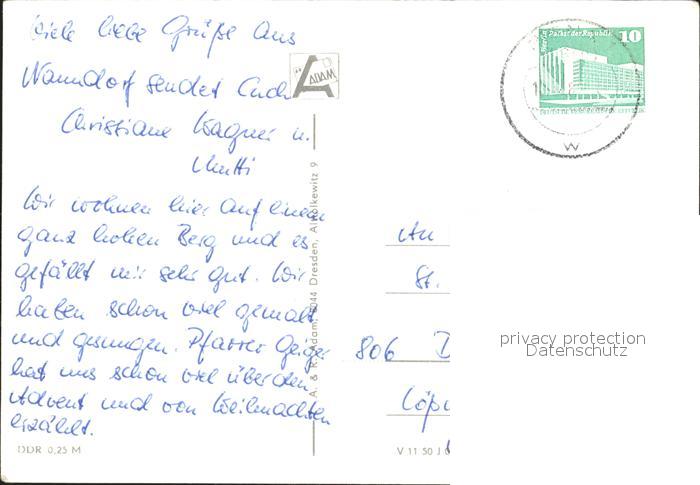 Viele liebe Grüße aus
Naundorf sendet Euch
Christiane Wagner u.
Mutti
Wir wohnen hier auf einem
ganz hohen Berg und es
gefällt mir sehr gut. Wir
haben schon viel gemalt
und gesungen. Pfarrer Geiger
hat uns schon viel über den
Advent und von Weihnachten
erzählt.
DDR 0,25 M
ADAM
A. & R. Adam, 8044 Dresden, Altwilkewitz 9
Palast der Republik
10
An
St.
806 D
Löp
V 11 50 J
privacy protection
Datenschutz